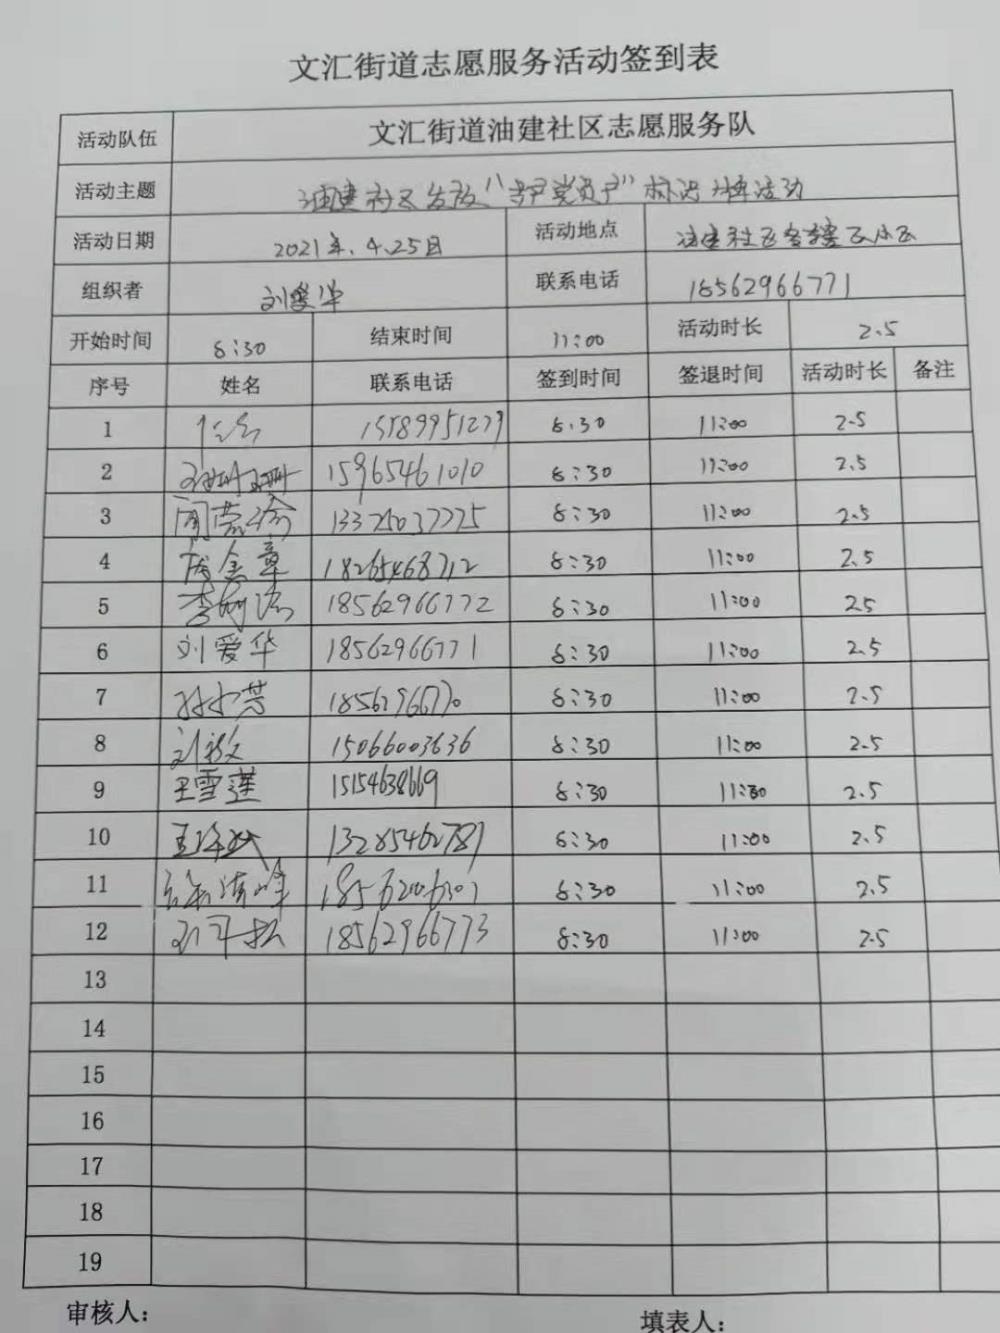 文汇街道志愿服务活动签到表
活动队伍 文汇街道油建社区志愿服务队
活动主题 油建社区发放“共产党员户”标识牌活动
活动日期 2021年.4.25日 活动地点 油建社区各辖区小区
组织者 刘爱华 联系电话 18562966771
开始时间 8:30 结束时间 11:00 活动时长 2.5
序号 姓名 联系电话 签到时间 签退时间 活动时长 备注
1 15189951279 8:30 11:00 2.5
2 15965461010 8:30 11:00 2.5
3 13325037225 8:30 11:00 2.5
4 18265468712 8:30 11:00 2.5
5 18562966772 8:30 11:00 25
6 刘爱华 18562966771 8:30 11:00 2.5
7 18562966770 8:30 11:00 2.5
8 15066003636 8:30 11:00 2.5
9 王雪莲 15154638669 8:30 11:30 2.5
10 13285462789 8:30 11:00 2.5
11 8:30 11:00 2.5
12 18562966773 8:30 11:00 2.5
13
14
15
16
17
18
19
审核人： 填表人：